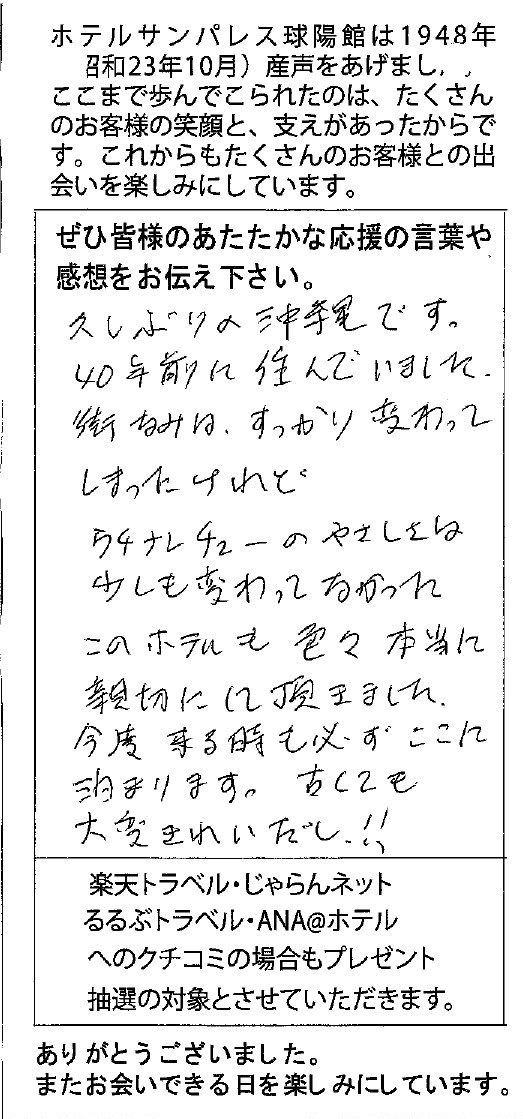 ホテルサンパレス球陽館は1948年
昭和23年10月）産声をあげまし
ここまで歩んでこられたのは、たくさん
のお客様の笑顔と、支えがあったからで
す。これからもたくさんのお客様との出
会いを楽しみにしています。
ぜひ皆様のあたたかな応援の言葉や
感想をお伝え下さい。
久しぶりの沖縄です。
40年前に住んでいました.
街なみは、すっかり変わって
しまったけれど
ウチナンチューのやさしさは
少しも変わってなかった
このホテルも色々本当に
親切にして頂きました.
今度来る時も必ずここに
泊まります。古くても
大変きれいだし!!
楽天トラベル・じゃらんネット
るるぶトラベル・ANA@ホテル
へのクチコミの場合もプレゼント
抽選の対象とさせていただきます。
ありがとうございました。
またお会いできる日を楽しみにしています。